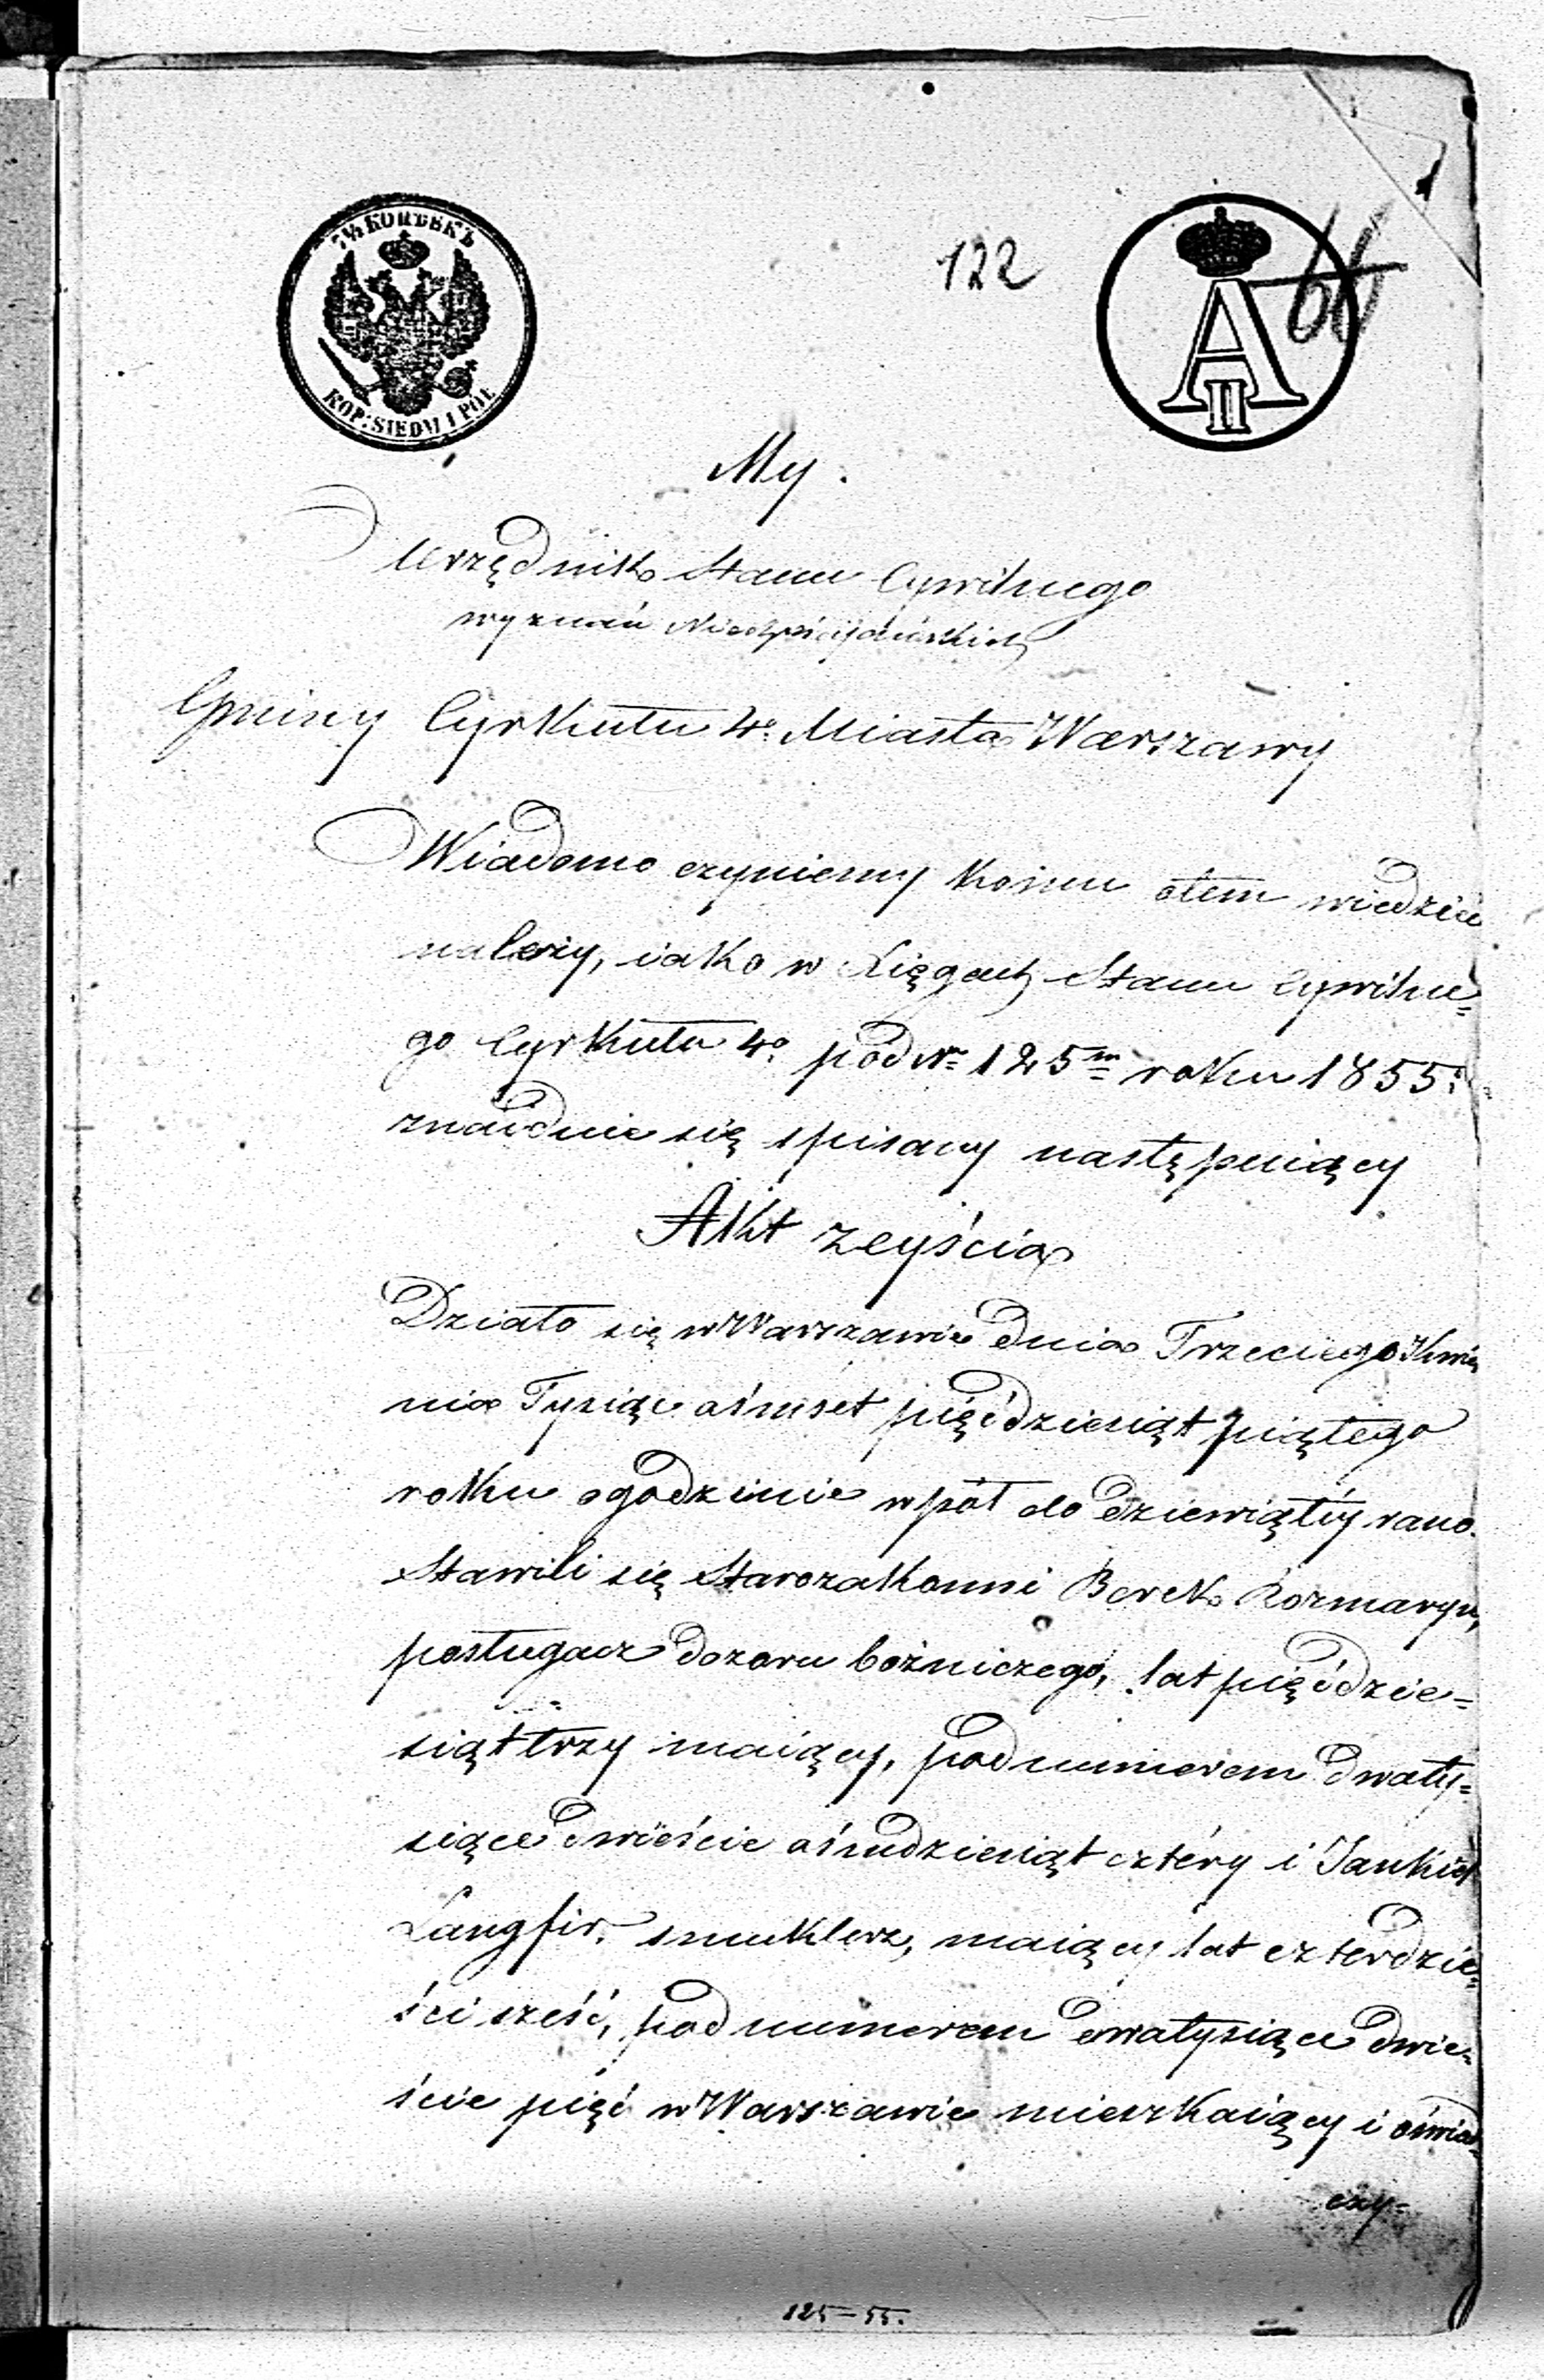 7½ КОПѢЕКЪ
KOP: SIEDM I PÓŁ
122
66
A II
My.
Urzędnik Stanu Cywilnego
wyznań Niechrześcijańskich
Gminy Cyrkułu 4º Miasta Warszawy
Wiadomo czyniemy komu otem wiedzieć
należy, iako w Xięgach Stanu Cywilne=
go Cyrkułu 4º pod Nr 125m roku 1855.
znaiduie się spisany następuiący
Akt zeyścia
Działo się w Warszawie dnia Trzeciego Kwie
nia Tysiąc ośmset pięćdziesiąt piątego
roku o godzinie wpół do dziewiątéy rano.
Stawili się Starozakonni Berek Rozmaryn,
posługacz dozoru bożniczego, lat pięćdzie=
siąt trzy maiący, pod numerem dwaty=
siące dwieście ośmdziesiąt cztéry i Jankiel
Langfir, szmuklerz, maiący lat czterdzie=
ści sześć, pod numerem dwatysiące dwie=
ście pięć w Warszawie mieszkaiący i oświad=
czy=
125–55.